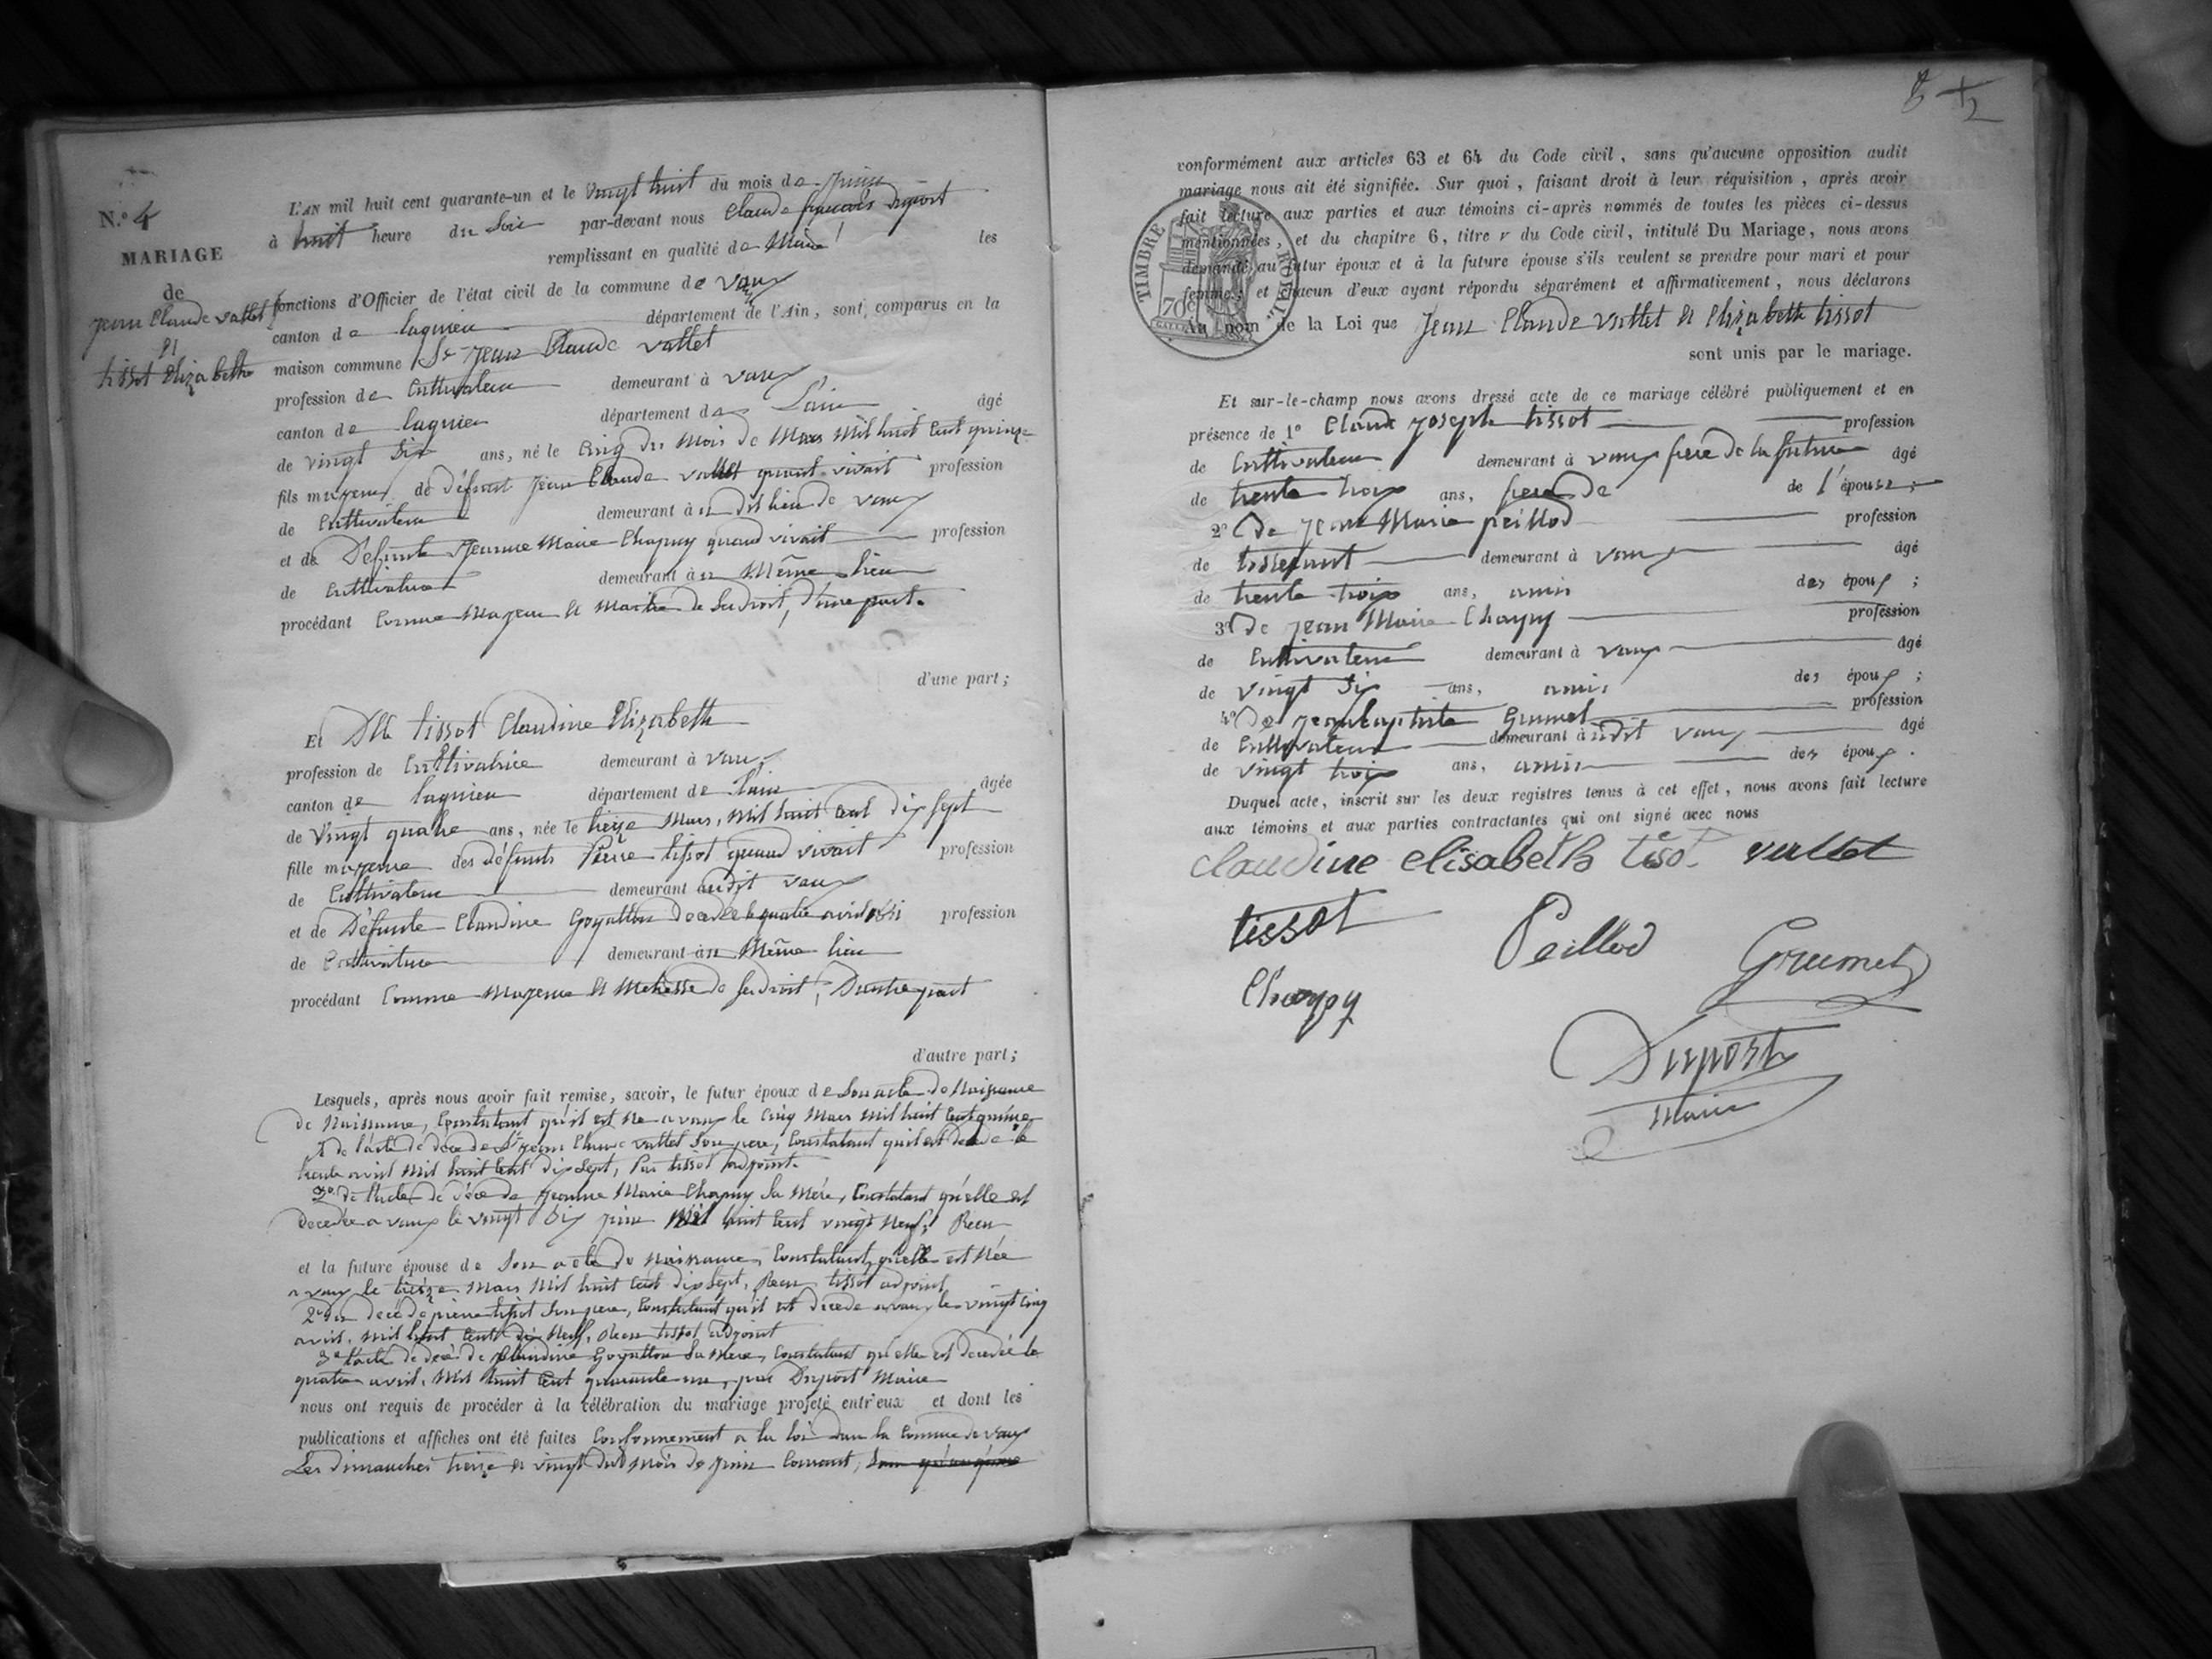 N.º 4
MARIAGE
de
Jean Claude vallet
Et
tissot Elizabeth
L'AN mil huit cent quarante-un et le vingt huit du mois de Juin
à huit heure du Soir par-devant nous Claude francois Duport
remplissant en qualité de Maire les
fonctions d'Officier de l'état civil de la commune de vaux
canton de lagnieu département de l'Ain, sont comparus en la
maison commune Sr Jean Claude vallet
profession de Cultivateur demeurant à vaux
canton de lagnieu département de L'ain âgé
de vingt Six ans, né le Cinq du Mois de Mars Mil huit Cent quinze
fils majeur de défunt Jean Claude vallet quand vivait profession
de Cultivateur demeurant à dit lieu de vaux
et de Défunte Jeanne Marie Chapuy quand vivait profession
de Cultivateur demeurant au Même lieu
procédant Comme Majeur et Maitre de Ses droit, d'une part.
d'une part;
Et Dlle tissot Claudine Elizabeth
profession de Cultivatrice demeurant à vaux
canton de lagnieu département de l'ain âgée
de vingt quatre ans, née le treize Mars, Mil huit Cent dix Sept
fille majeure des défunts Pierre tissot quand vivait profession
de Cultivateur demeurant audit vaux
et de Défunte Claudine Goyatton décédée le quatre avril 1841 profession
de Cultivatrice demeurant au Même lieu
procédant Comme Majeure et Metresse de Ses droit, D'autre part
d'autre part;
Lesquels, après nous avoir fait remise, savoir, le futur époux de Son acte de Naissance
de Naissance, Constatant qu'il est Né a vaux le Cinq Mars Mil huit Cent quinze
de l'acte de décé de Sr Jean Claude vallet Son pere, Constatant qu'il est décédé le
trente avril Mil huit Cent dix Sept, Par tissot adjoint.
3º de l'acte de décé de Jeanne Marie Chapuy Sa Mére, Constatant qu'elle est
decedée a vaux le vingt Six juin Mil huit Cent vingt Neuf, Recu
et la future épouse de Son acte de Naissance, Constatant, qu'elle est Née
a vaux le treize Mars Mil huit Cent dix Sept, Recu tissot adjoint
2º du decé de pierre tissot Son pere, Constatant qu'il est décedé a vaux le vingt Cinq
avril, Mil huit Cent dix Neuf, Recu tissot adjoint
3º l'acte de decé de Claudine Goyatton Sa Mere, Constatant qu'elle est decedée le
quatre avril, Mil huit Cent quarante un, par Duport Maire
nous ont requis de procéder à la célébration du mariage projeté entr'eux et dont les
publications et affiches ont été faites Conformement a la loi dans la Commune de vaux
Les dimanches treize et vingt dud Mois de juin Courant,
conformément aux articles 63 et 64 du Code civil, sans qu'aucune opposition audit
mariage nous ait été signifiée. Sur quoi, faisant droit à leur réquisition, après avoir
fait lecture aux parties et aux témoins ci-après nommés de toutes les pièces ci-dessus
mentionnées, et du chapitre 6, titre v du Code civil, intitulé Du Mariage, nous avons
demandé au futur époux et à la future épouse s'ils veulent se prendre pour mari et pour
femme; et chacun d'eux ayant répondu séparément et affirmativement, nous déclarons
Au nom de la Loi que Jean Claude vallet et Elizabeth tissot
sont unis par le mariage.
TIMBRE ROYAL
70c
Et sur-le-champ nous avons dressé acte de ce mariage célébré publiquement et en
présence de 1º Claude Joseph tissot profession
de Cultivateur demeurant à vaux frere de la future âgé
de trente trois ans, frere de de l'épouse;
2º De Jean Marie peillod profession
de tisserant demeurant à vaux âgé
de trente trois ans, amis des époux;
3º De Jean Marie Chapuy profession
de Cultivateur demeurant à vaux âgé
de vingt Six ans, amis des époux;
4º De Jean baptiste Grumet profession
de Cultivateur demeurant audit vaux âgé
de vingt trois ans, amis des époux.
Duquel acte, inscrit sur les deux registres tenus à cet effet, nous avons fait lecture
aux témoins et aux parties contractantes qui ont signé avec nous
claudine elisabeth tisot vallet
tissot Peillod Grumet
Chapuy
Duport
Maire